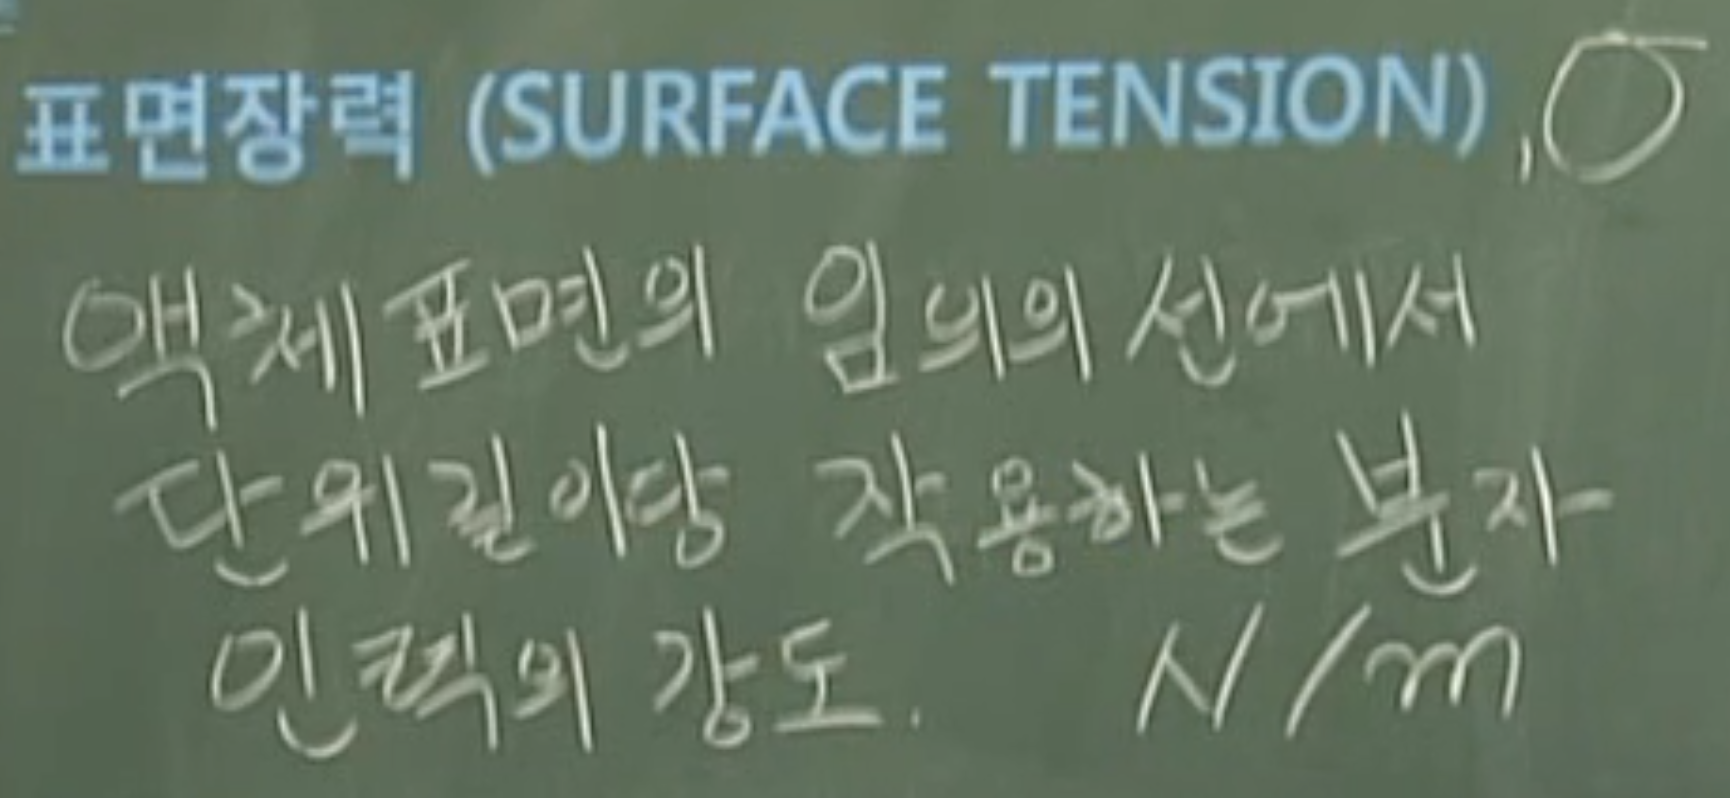 표면장력 (SURFACE TENSION), σ
액체표면의 임의의 선에서
단위길이당 작용하는 분자
인력의 강도. N/m